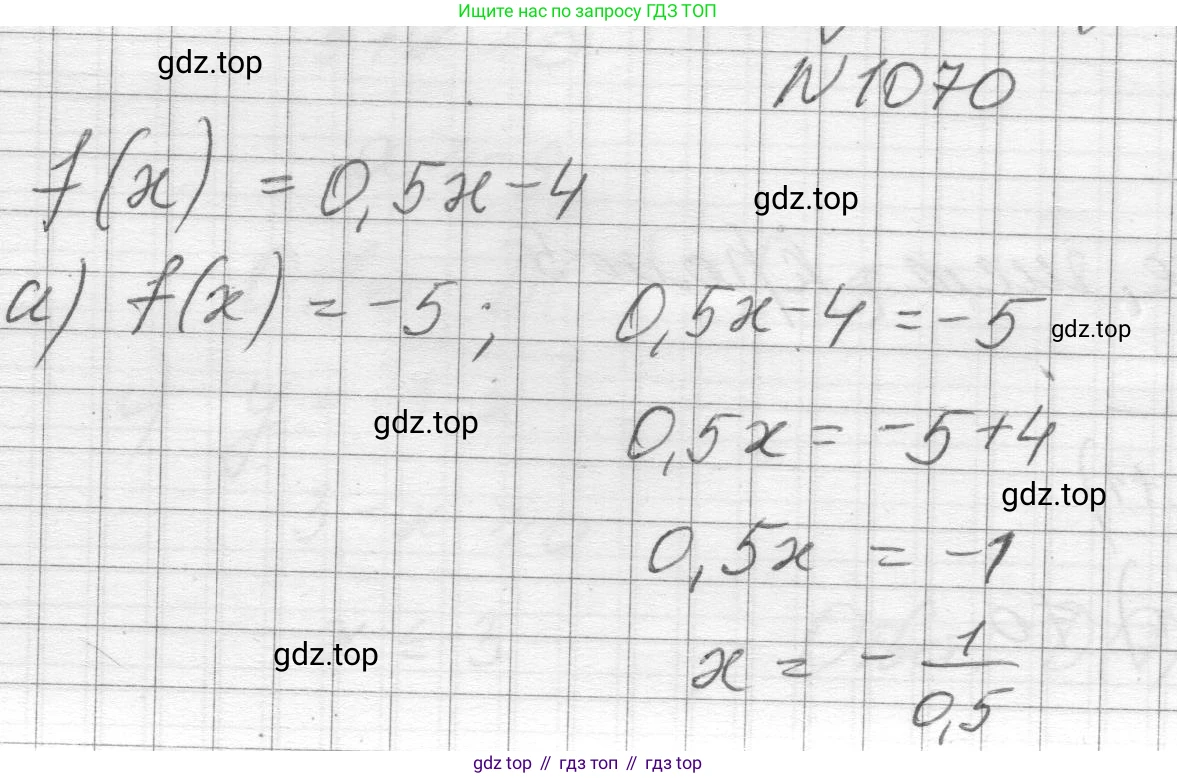 Ищите нас по запросу ГДЗ ТОП
N 1070
gdz.top
f(x) = 0,5x - 4
gdz.top
а) f(x) = -5; 0,5x - 4 = -5
gdz.top
0,5x = -5 + 4
gdz.top
gdz.top
0,5x = -1
gdz.top
x = - 1/0,5
gdz top // гдз топ // гдз top